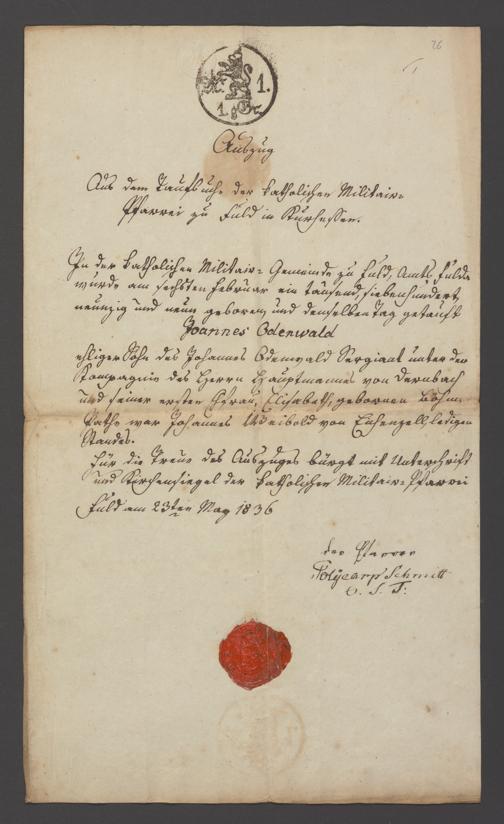 26
1.
1 gGr.
Auszug
Aus dem Taufbuche der katholischen Militair=
Pfarrei zu Fuld in Kurhessen.
In der katholischen Militair= Gemeinde zu Fuld, Amts Fulda
wurde am sechsten Februar ein tausend, siebenhundert,
neunzig und neun geboren, und denselben Tag getauft
Joannes Odenwald
ehliger Sohn des Johannes Odenwald Sergiant unter der
Kompagnie des Herrn Hauptmannes von Dernbach
und seiner ersten Ehefrau, Elisabeth, gebornen Böhm.
Pathe war Johannes von Eichenzell, ledigen
Standes.
Für die Treue des Auszuges bürgt mit Unterschrift
und Kirchensiegel der katholischen Militair= Pfarrei
Fuld am 23ten May 1836
der Pfarrer
Polycarp Schmitt
O. S. F.